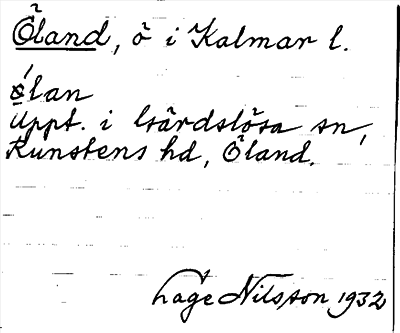 Öland, ö i Kalmar l.
ølan
Uppt. i Gärdslösa sn,
Runstens hd, Öland.
Lage Nilsson 1932